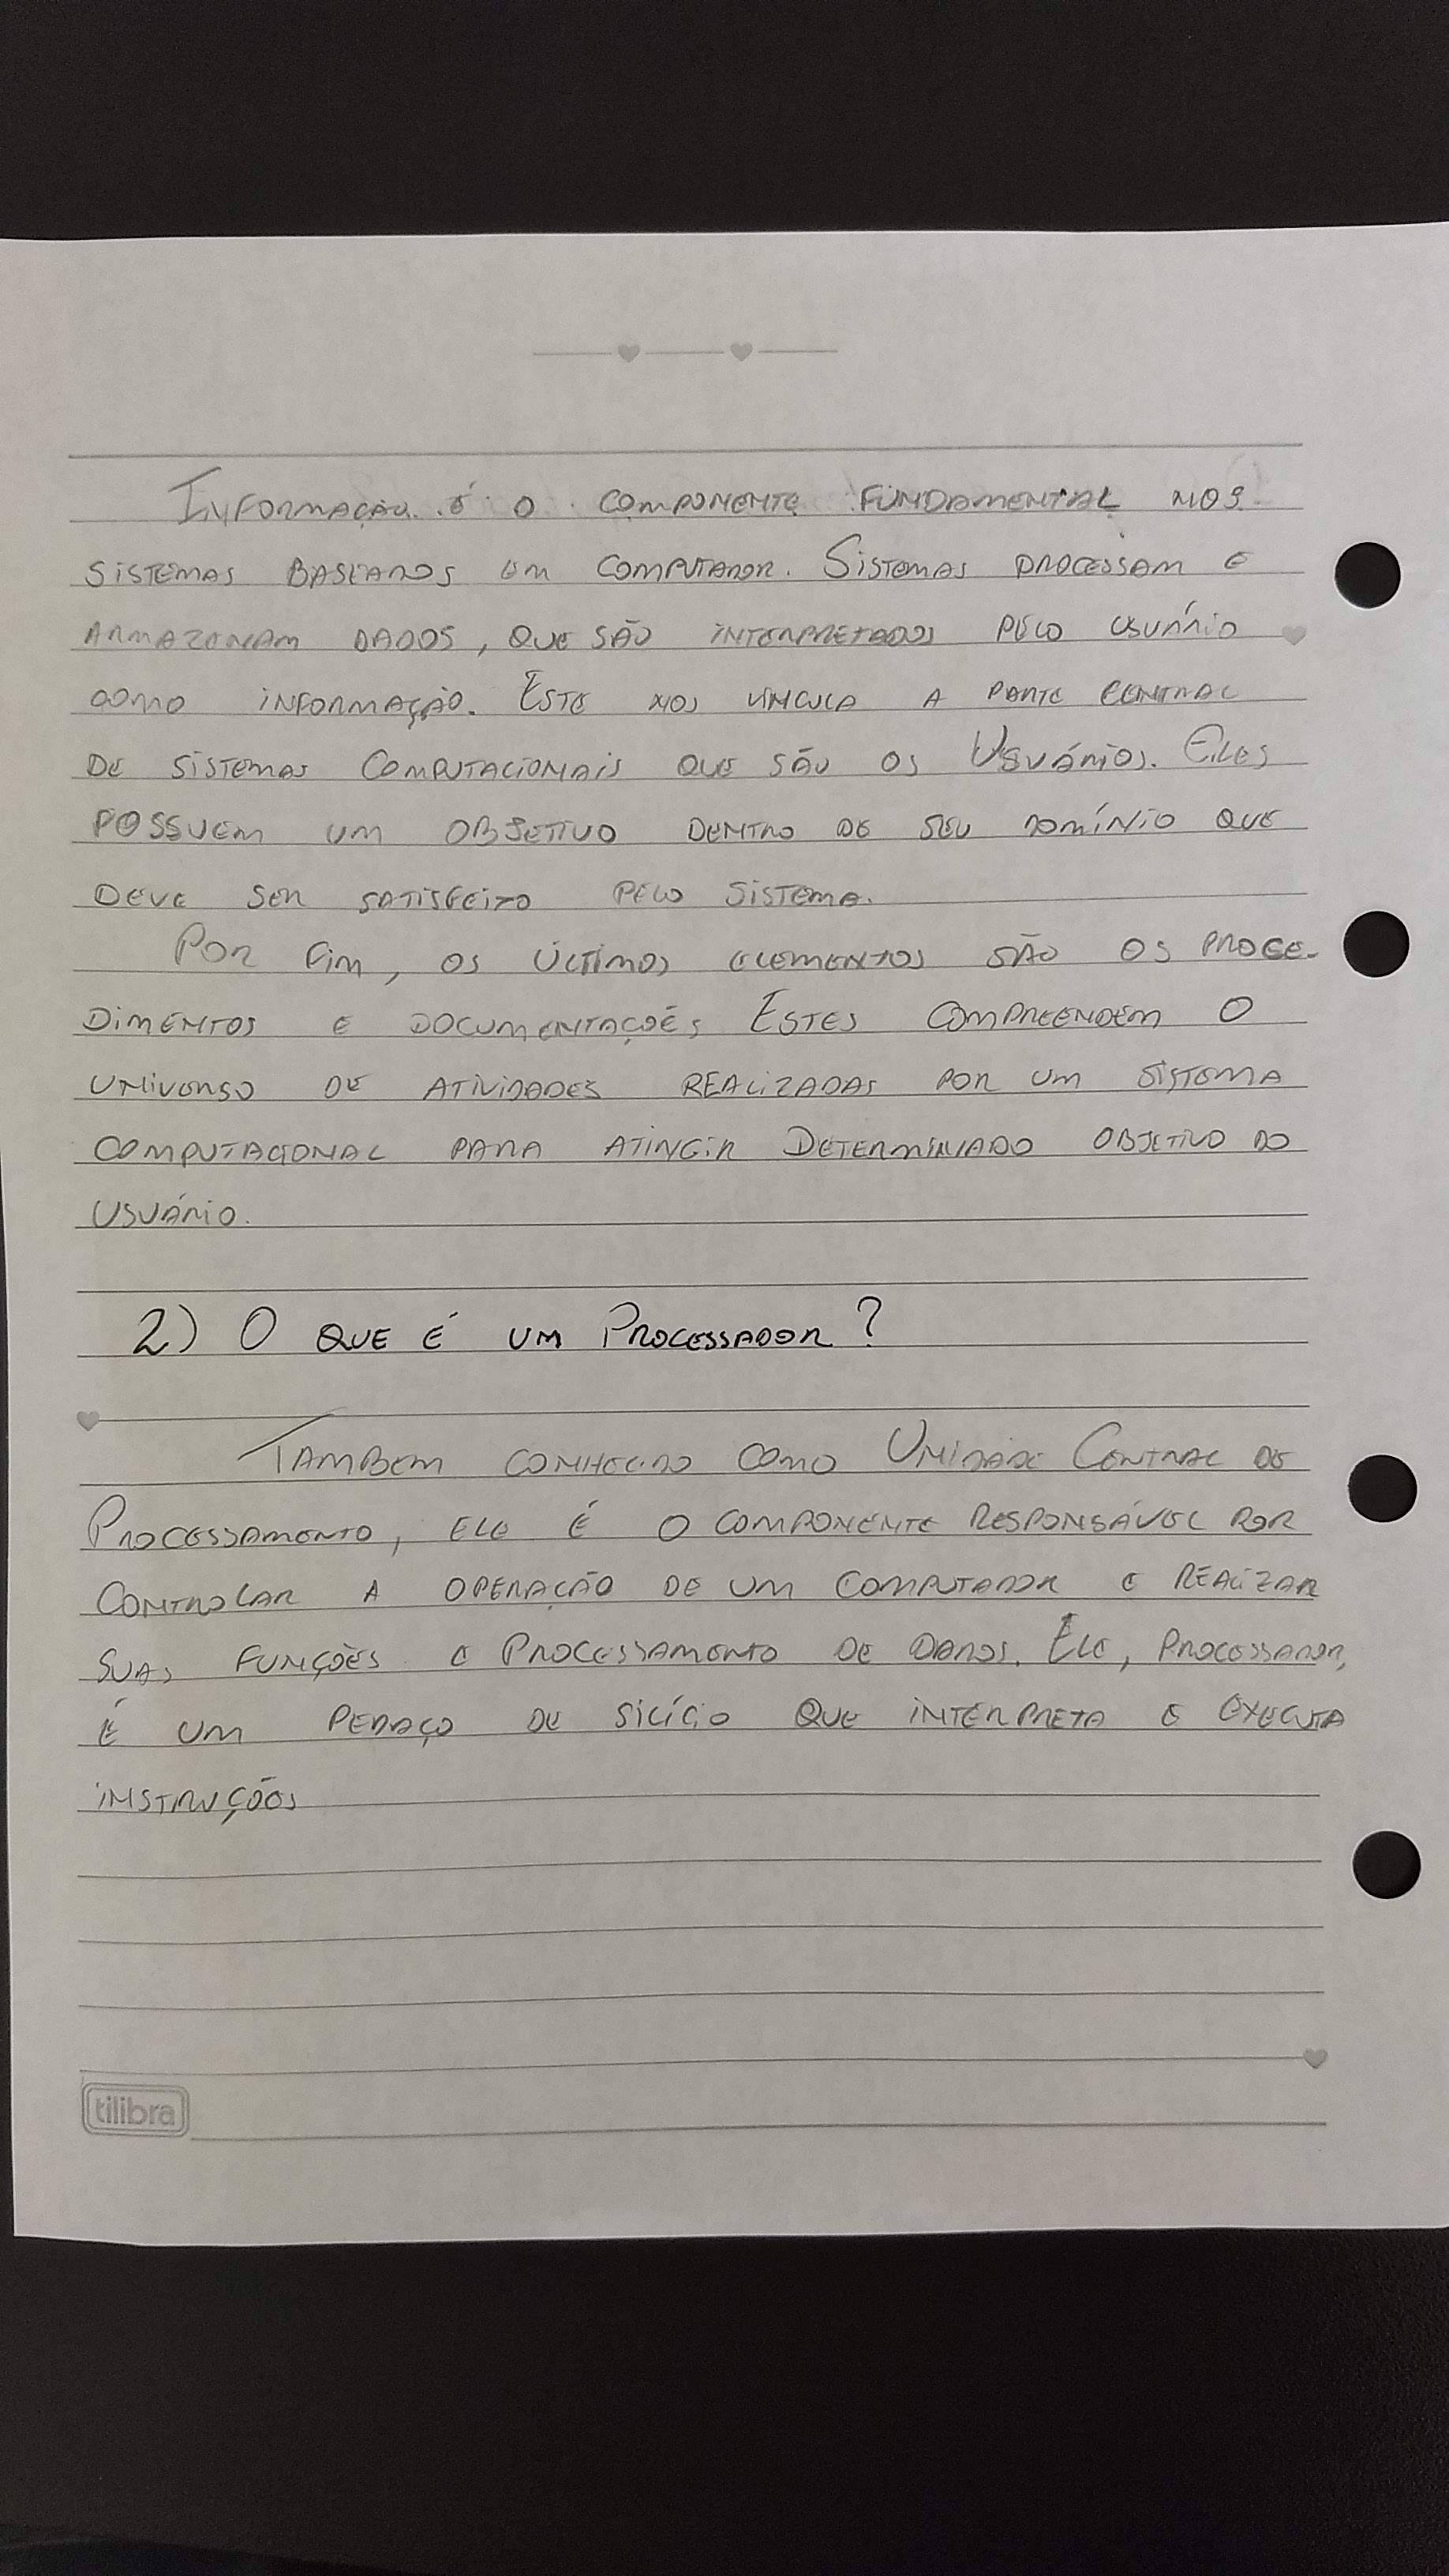 Informação é o componente fundamental nos
sistemas baseados em computador. Sistemas processam e
armazenam dados, que são interpretados pelo usuário
como informação. Este nos vincula a parte central
de sistemas computacionais que são os Usuários. Eles
possuem um objetivo dentro de seu domínio que
deve ser satisfeito pelo sistema.
Por fim, os últimos elementos são os proce-
dimentos e documentações Estes compreendem o
universo de atividades realizadas por um sistema
computacional para atingir determinado objetivo do
usuário.
2) O que é um Processador?
Tambem conhecido como Unidade Central de
Processamento, ele é o componente responsável por
controlar a operação de um computador e realizar
suas funções e processamento de dados. Ele, processador,
é um pedaço de silício que interpreta e executa
instruções
tilibra